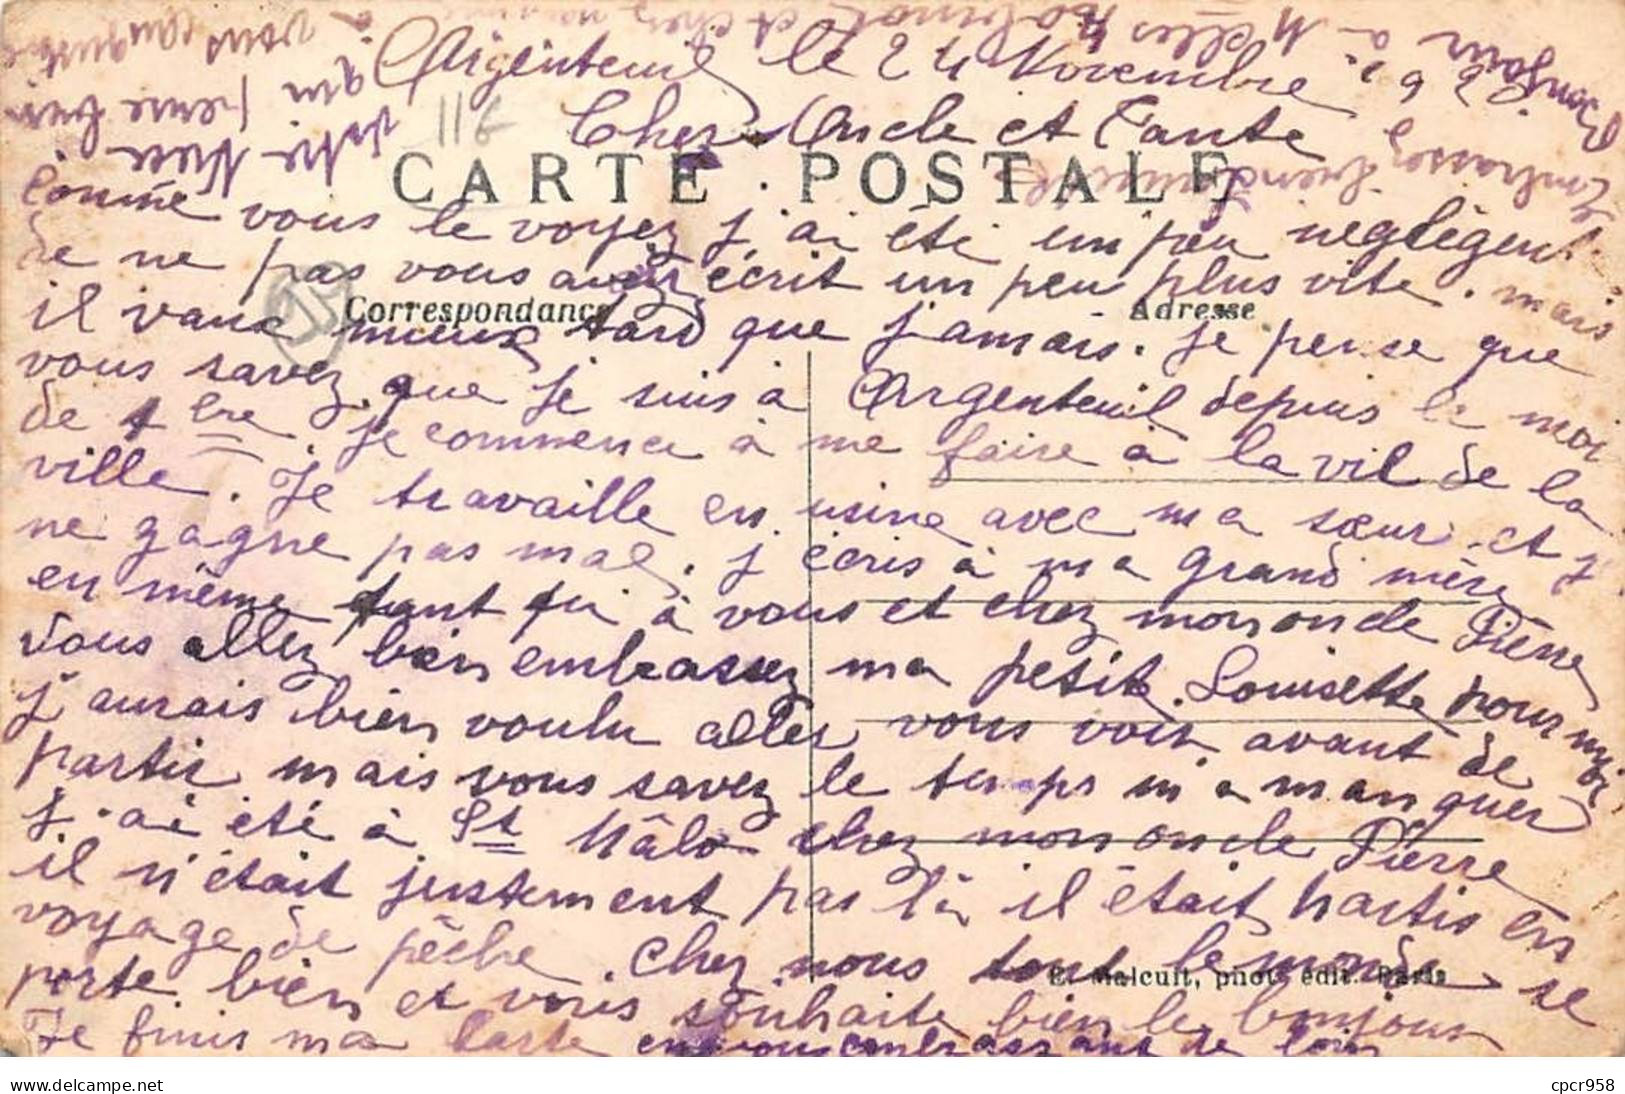 Argenteuil le 24 Novembre 19
Cher Oncle et Tante
CARTE POSTALE
Comme vous le voyez j'ai été un peu négligent
de ne pas vous avoir écrit un peu plus vite. mais
Correspondance
Adresse
il vaux mieux tard que jamais. je pense que
vous savez que je suis à Argenteuil depuis le moi
de 
je commence à me faire à la vil de la
ville. Je travaille en usine avec ma sœur et j
ne gagne pas mal. j'écris à ma grand mère
en même tant qu'à vous et chez mon oncle Pierre
Vous allez bien embrassez ma petite Louisette pour moi
j'aurais bien voulu aller vous voir avant de
partir mais vous savez le temps m'a manquer
j'ai été à St Mâlo chez mon oncle Pierre
il n'était justement pas là il était partis en
voyage de pêche. Chez nous tout le monde se
E. Malcuit, phot. édit. Paris
porte bien et vous souhaite bien le bonjour
Je finis ma carte en vous embrassant de loin
votre Nièce
qui pense bien
à vous
Bonjour à Melles
Embrassez
116
cpcr958
www.delcampe.net